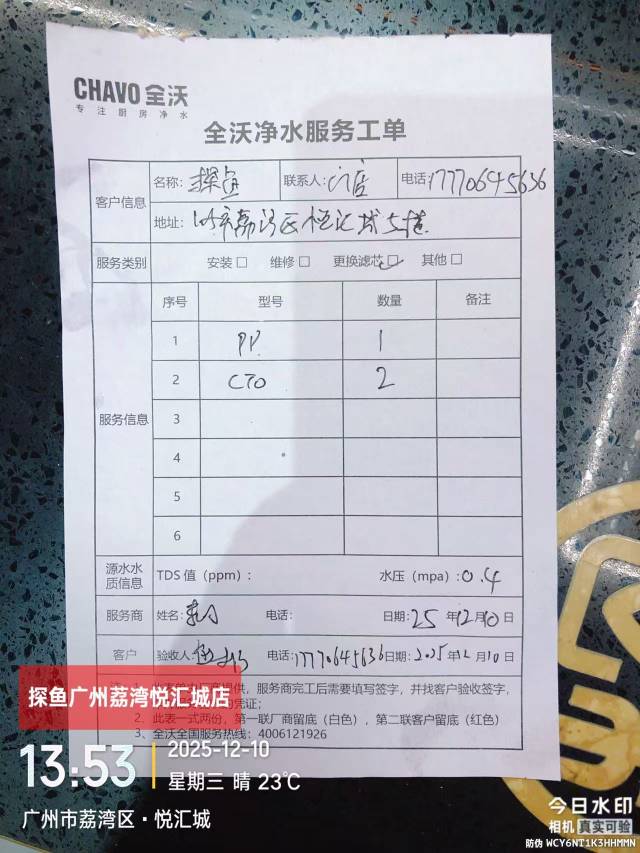 CHAVO全沃
专注厨房净水
全沃净水服务工单
客户信息
名称: 探鱼 联系人: 门店 电话: 17770645636
地址: 广州市荔湾区悦汇城5楼
服务类别 安装□ 维修□ 更换滤芯□ 其他□
服务信息
序号 型号 数量 备注
1 PP 1
2 CTO 2
3
4
5
6
源水水质信息 TDS 值（ppm）: 水压（mpa）: 0.4
服务商 姓名: 电话: 日期: 25 年 12 月 10 日
客户 验收人: 电话: 17770645636 日期: 2025 年 12 月 10 日
提供，服务商完工后需要填写签字，并找客户验收签字，
凭证；
2、此表一式两份，第一联厂商留底（白色），第二联客户留底（红色）
3、全沃全国服务热线：4006121926
探鱼广州荔湾悦汇城店
13:53
2025-12-10
星期三 晴 23℃
广州市荔湾区·悦汇城
今日水印
相机 真实可验
防伪 WCY6NT1K3HHMMN